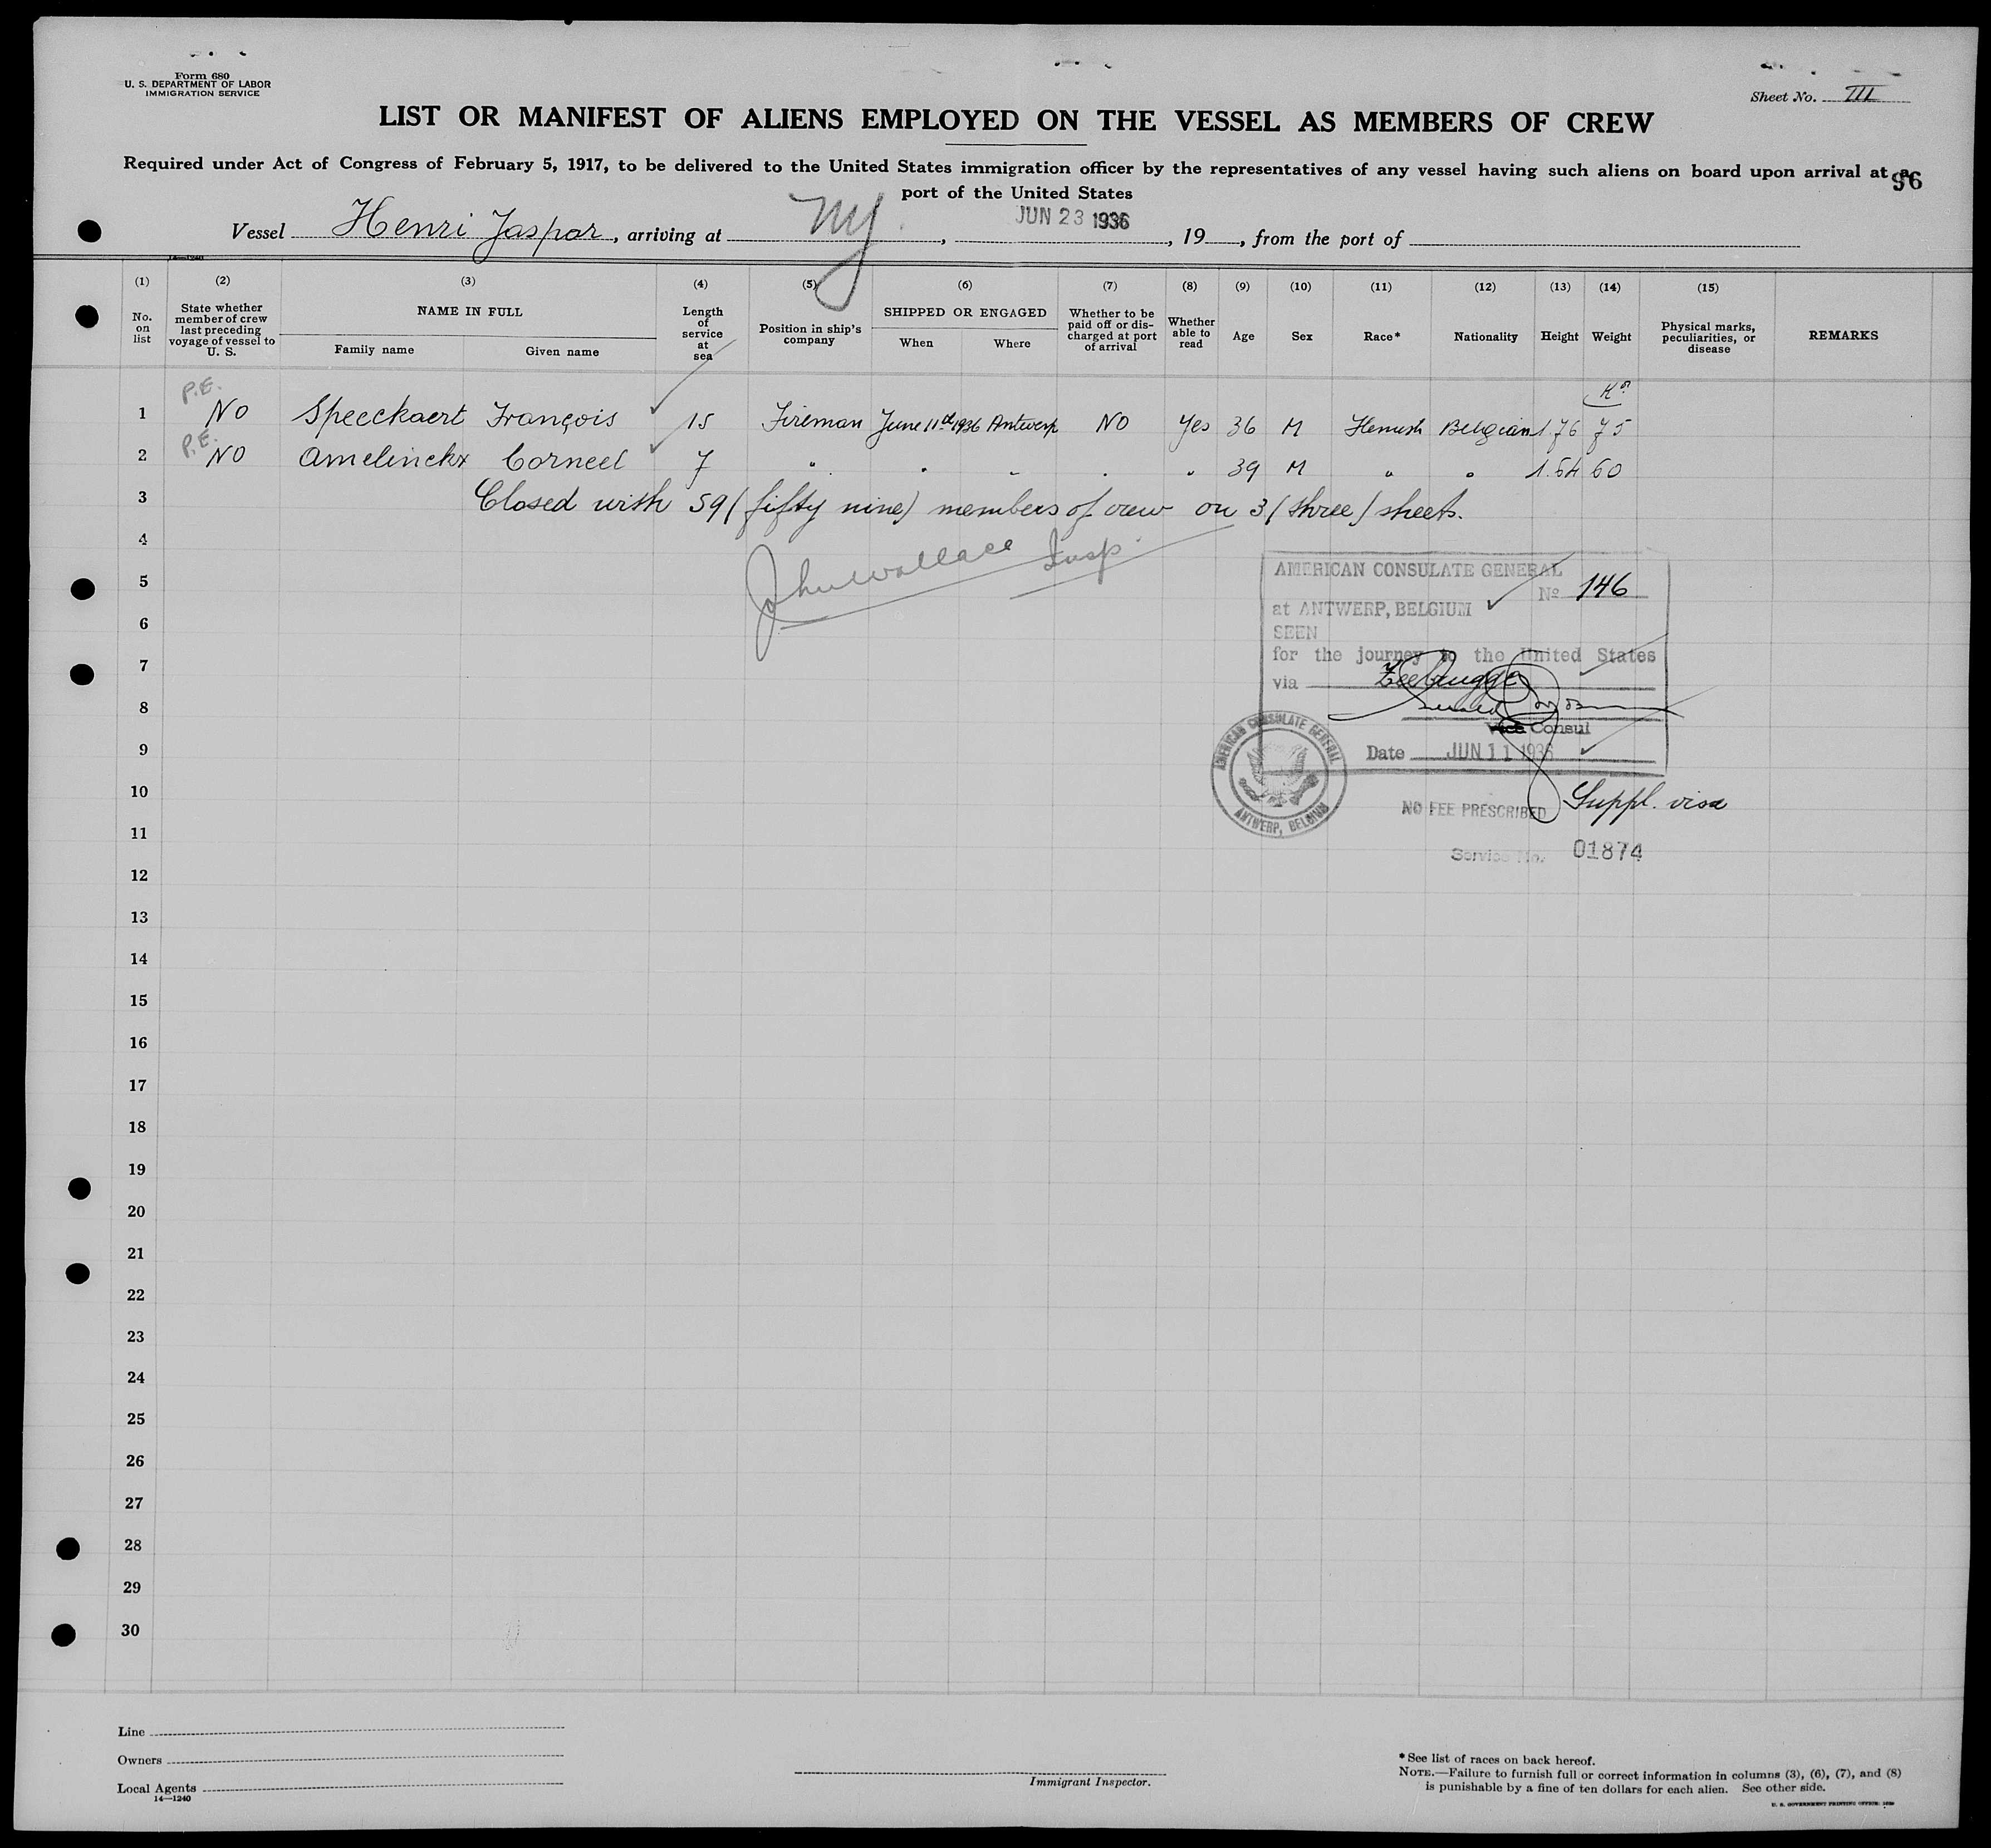 Form 680
U. S. DEPARTMENT OF LABOR
IMMIGRATION SERVICE
Sheet No. III
LIST OR MANIFEST OF ALIENS EMPLOYED ON THE VESSEL AS MEMBERS OF CREW
Required under Act of Congress of February 5, 1917, to be delivered to the United States immigration officer by the representatives of any vessel having such aliens on board upon arrival at a
port of the United States
96
Vessel Henri Jaspar, arriving at NY, JUN 23 1936, 19, from the port of
14—1240
(1) (2) (3) (4) (5) (6) (7) (8) (9) (10) (11) (12) (13) (14) (15)
No. on list
State whether member of crew last preceding voyage of vessel to U. S.
NAME IN FULL
Family name Given name
Length of service at sea
Position in ship's company
SHIPPED OR ENGAGED
When Where
Whether to be paid off or discharged at port of arrival
Whether able to read
Age
Sex
Race*
Nationality
Height
Weight
Physical marks, peculiarities, or disease
REMARKS
P.E. Ko
1 NO Speeckaert François 15 Fireman June 11th 1936 Antwerp NO Yes 36 M Flemish Belgian 1.76 75
P.E.
2 NO Amelinckx Corneel 7 " " " " " 39 M " " 1.64 60
3 Closed with 59 (fifty nine) members of crew on 3 (three) sheets.
4
John Wallace Insp.
5
6
7
8
9
10
11
12
13
14
15
16
17
18
19
20
21
22
23
24
25
26
27
28
29
30
AMERICAN CONSULATE GENERAL
No 146
at ANTWERP, BELGIUM
SEEN
for the journey to the United States
via Zeebrugge
Vice Consul
Date JUN 11 1936
AMERICAN CONSULATE GENERAL
ANTWERP, BELGIUM
NO FEE PRESCRIBED Suppl. visa
Service No. 01874
Line
Owners
Local Agents
14—1240
Immigrant Inspector.
* See list of races on back hereof.
NOTE.—Failure to furnish full or correct information in columns (3), (6), (7), and (8)
is punishable by a fine of ten dollars for each alien. See other side.
U. S. GOVERNMENT PRINTING OFFICE: